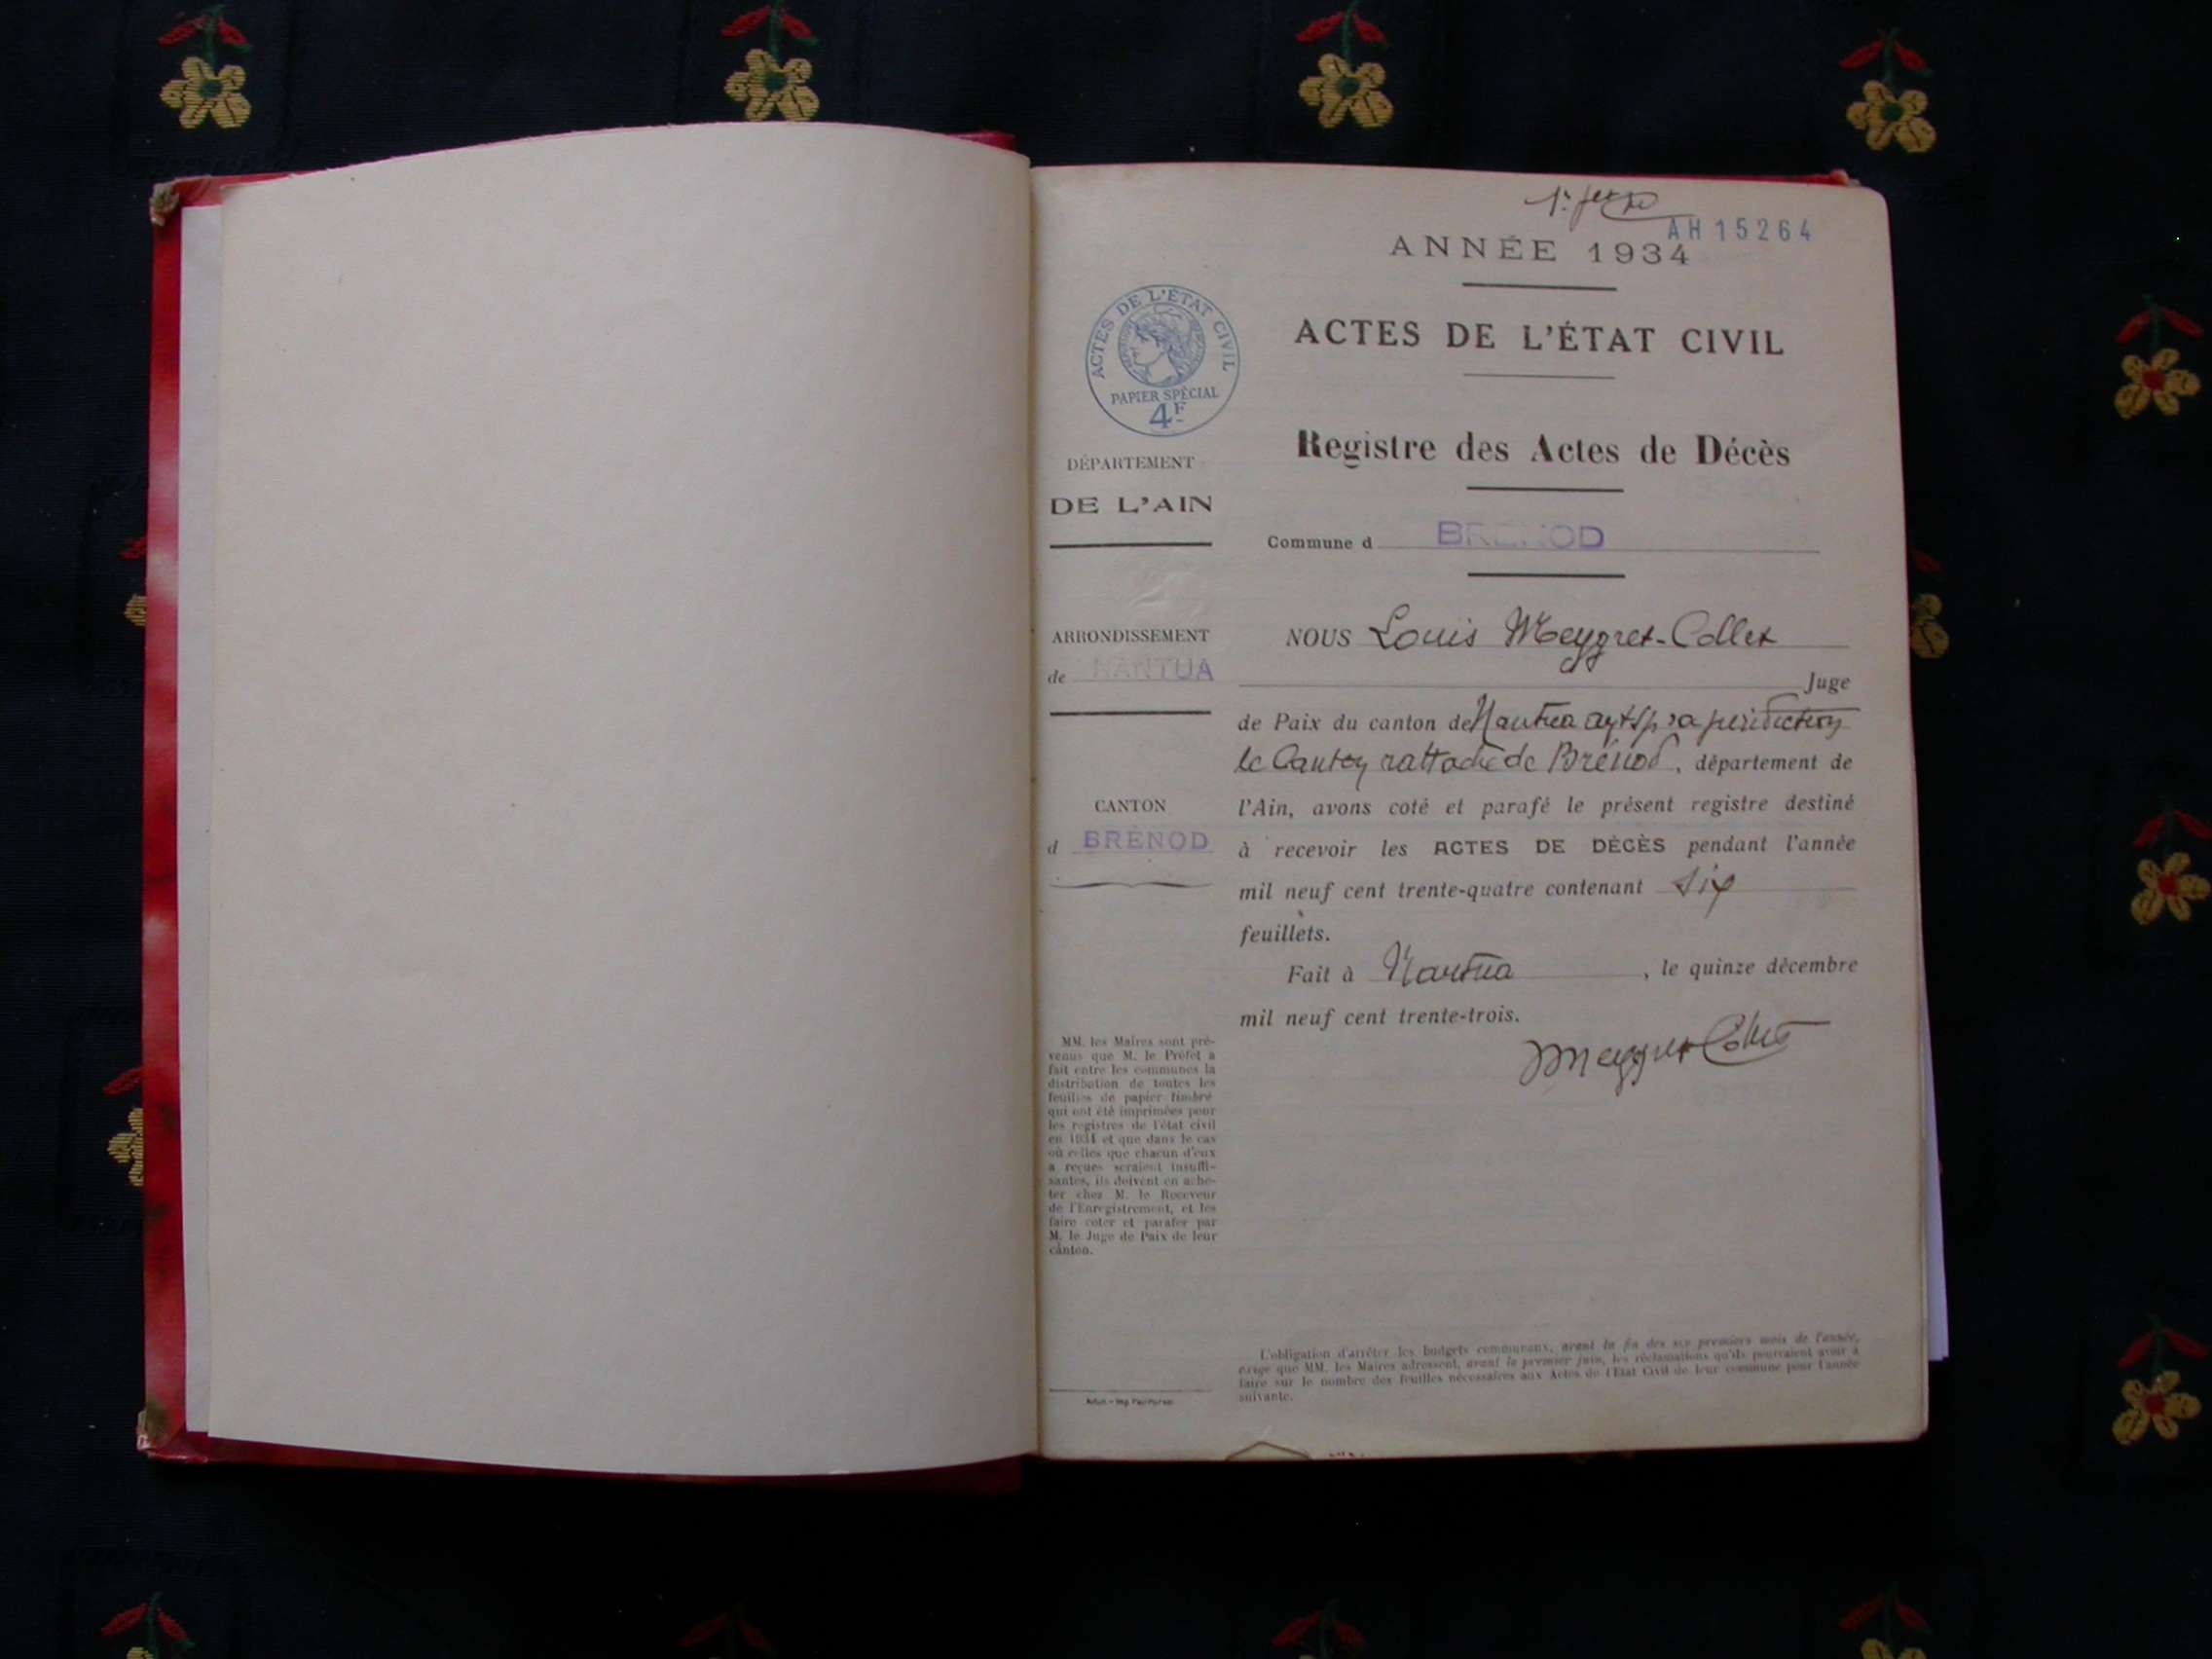 AH 15264
ANNÉE 1934
ACTES DE L'ÉTAT CIVIL
Registre des Actes de Décès
Commune d BRÉNOD
ACTES DE L'ÉTAT CIVIL
PAPIER SPÉCIAL
4F
DÉPARTEMENT
DE L'AIN
ARRONDISSEMENT
de NANTUA
CANTON
d BRÉNOD
MM. les Maires sont pré-
venus que M. le Préfet a
fait entre les communes la
distribution de toutes les
feuilles de papier timbré
qui ont été imprimées pour
les registres de l'état civil
en 1934 et que dans le cas
où celles que chacun d'eux
a reçues seraient insuffi-
santes, ils doivent en ache-
ter chez M. le Receveur
de l'Enregistrement, et les
faire coter et parafer par
M. le Juge de Paix de leur
canton.
NOUS Louis Meygret-Collet
Juge
de Paix du canton de Nantua ayt sa juridiction
le Canton rattaché de Brénod, département de
l'Ain, avons coté et parafé le présent registre destiné
à recevoir les ACTES DE DÉCÈS pendant l'année
mil neuf cent trente-quatre contenant six
feuillets.
Fait à Nantua, le quinze décembre
mil neuf cent trente-trois.
Meygret Collet
L'obligation d'arrêter les budgets communaux, avant la fin des six premiers mois de l'année,
exige que MM. les Maires adressent, avant le premier juin, les réclamations qu'ils pourraient avoir à
faire sur le nombre des feuilles nécessaires aux Actes de l'Etat Civil de leur commune pour l'année
suivante.